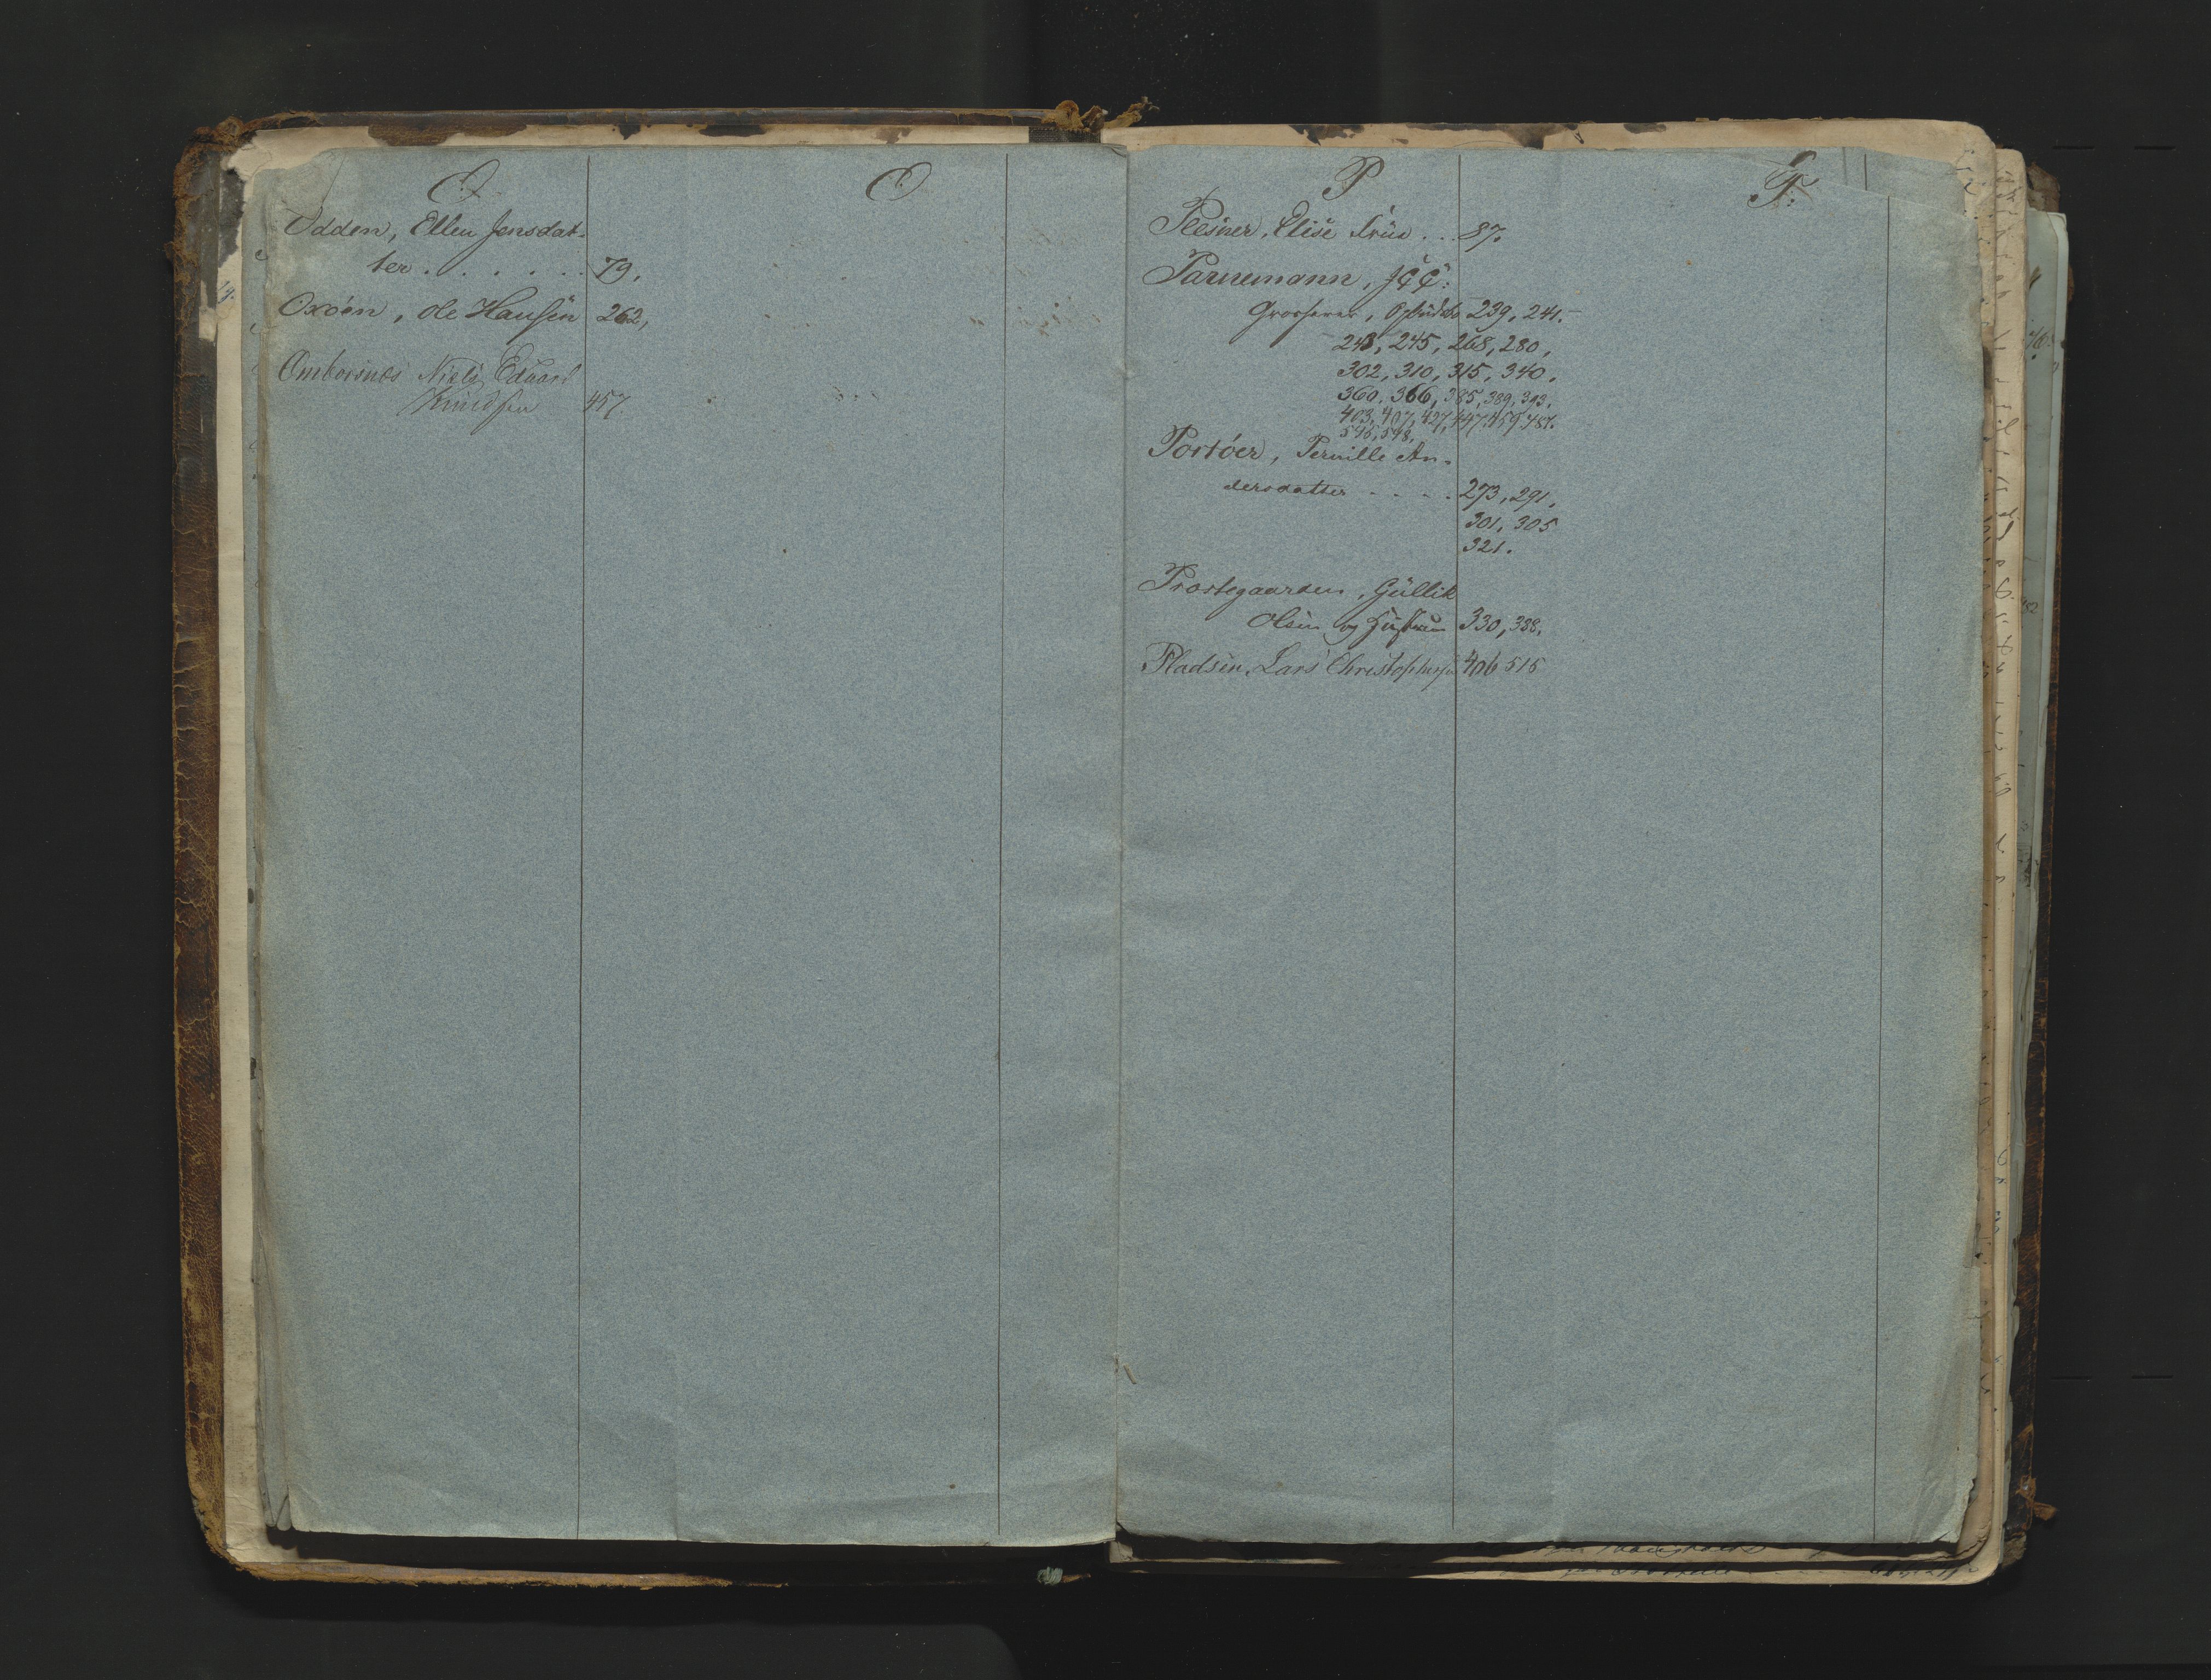 O
O
Odden, Ellen Jensdat-
ter . . . . . . 79.
Oxøen, Ole Hansen 262,
Omborsnes Niels Eduard
Knudsen 457
P
P.
Plesner, Elise Frue . . 87.
Parnemann,
Grosserer, Opbudsbo 239, 241.
243, 245, 268, 280,
302, 310, 315, 340,
360, 366, 385, 389, 393,
403, 407, 427, 447, 459 481.
545, 548,
Portøer, Pernille An-
dersdatter - - - - 273, 291,
301, 305
321.
Prostegaarden, Gullik
Olsen og Hustru 330, 338,
Pladsen, Lars Christophersen 406 515